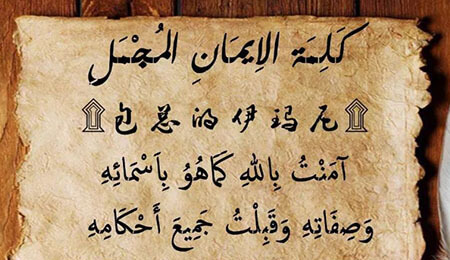 كَلِمَة الإِيمَانِ المُجْمَلِ
۩ 包总的伊玛尼 ۩
آمَنْتُ بِاللهِ كَمَاهُوَ بِأَسْمَائِهِ
وَصِفَاتِهِ وَقَبِلْتُ جَمِيعَ أَحْكَامِهِ